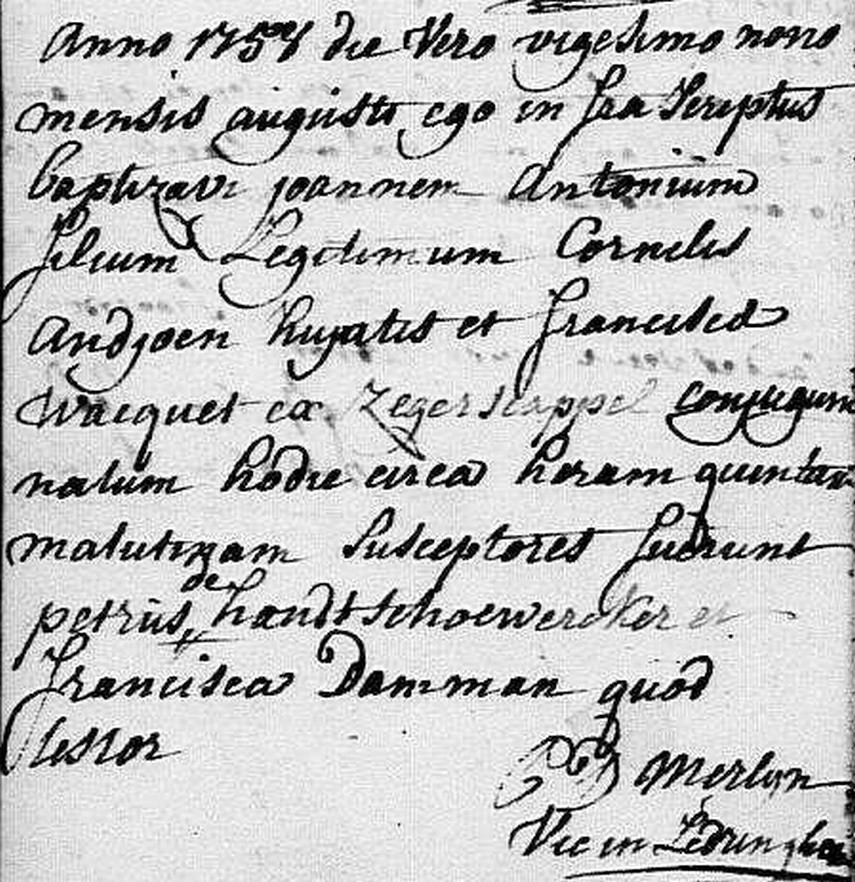 Anno 1758 die Vero vigesimo nono
mensis augusti ego in fra Scriptus
baptizavi joannem Antonium
filium Legitimum Cornelis
Andjoen hujatis et francisca
Wacquet ex Zegerscappel conjugum
natum hodie circa horam quintam
matutinam Susceptores fuerunt
petrus de handtschoewercker et
francisca Damman quod
testor
Merlyn
Vic in Ledringhem